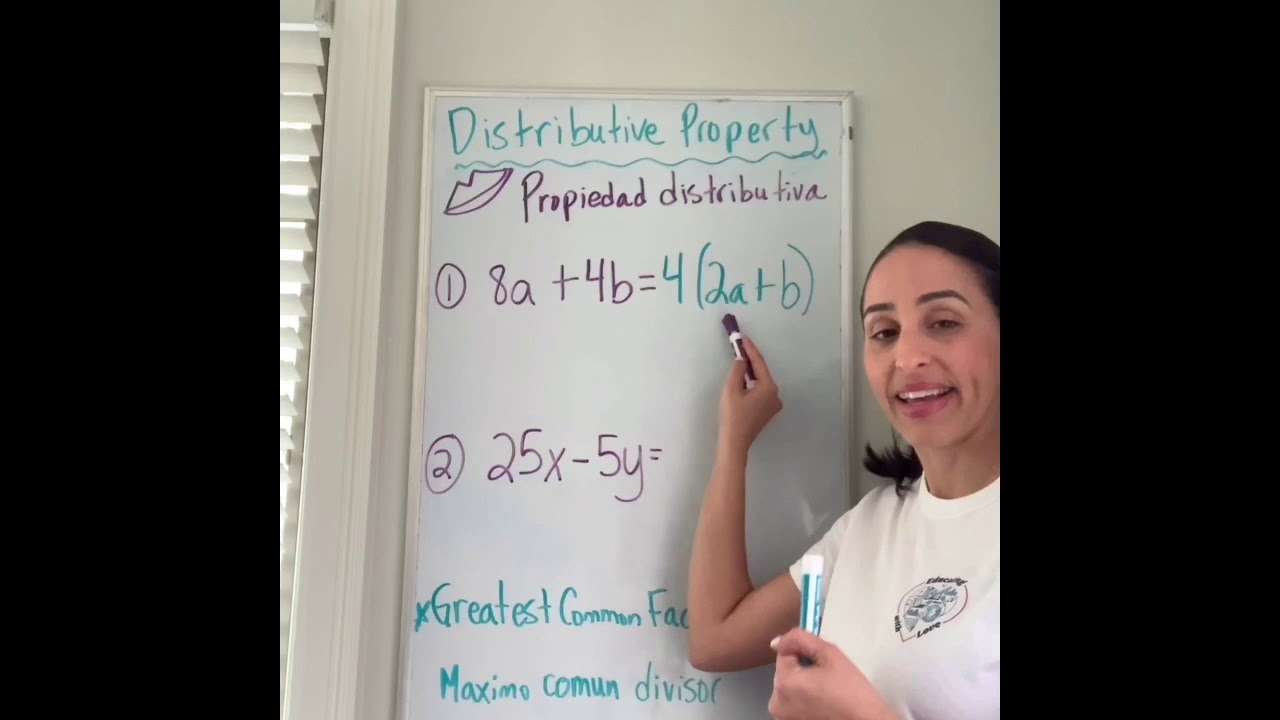 Distributive Property
Propiedad distributiva
① 8a + 4b = 4(2a + b)
② 25x - 5y =
*Greatest Common Fac
Maximo comun divisor
Educating
with
Love